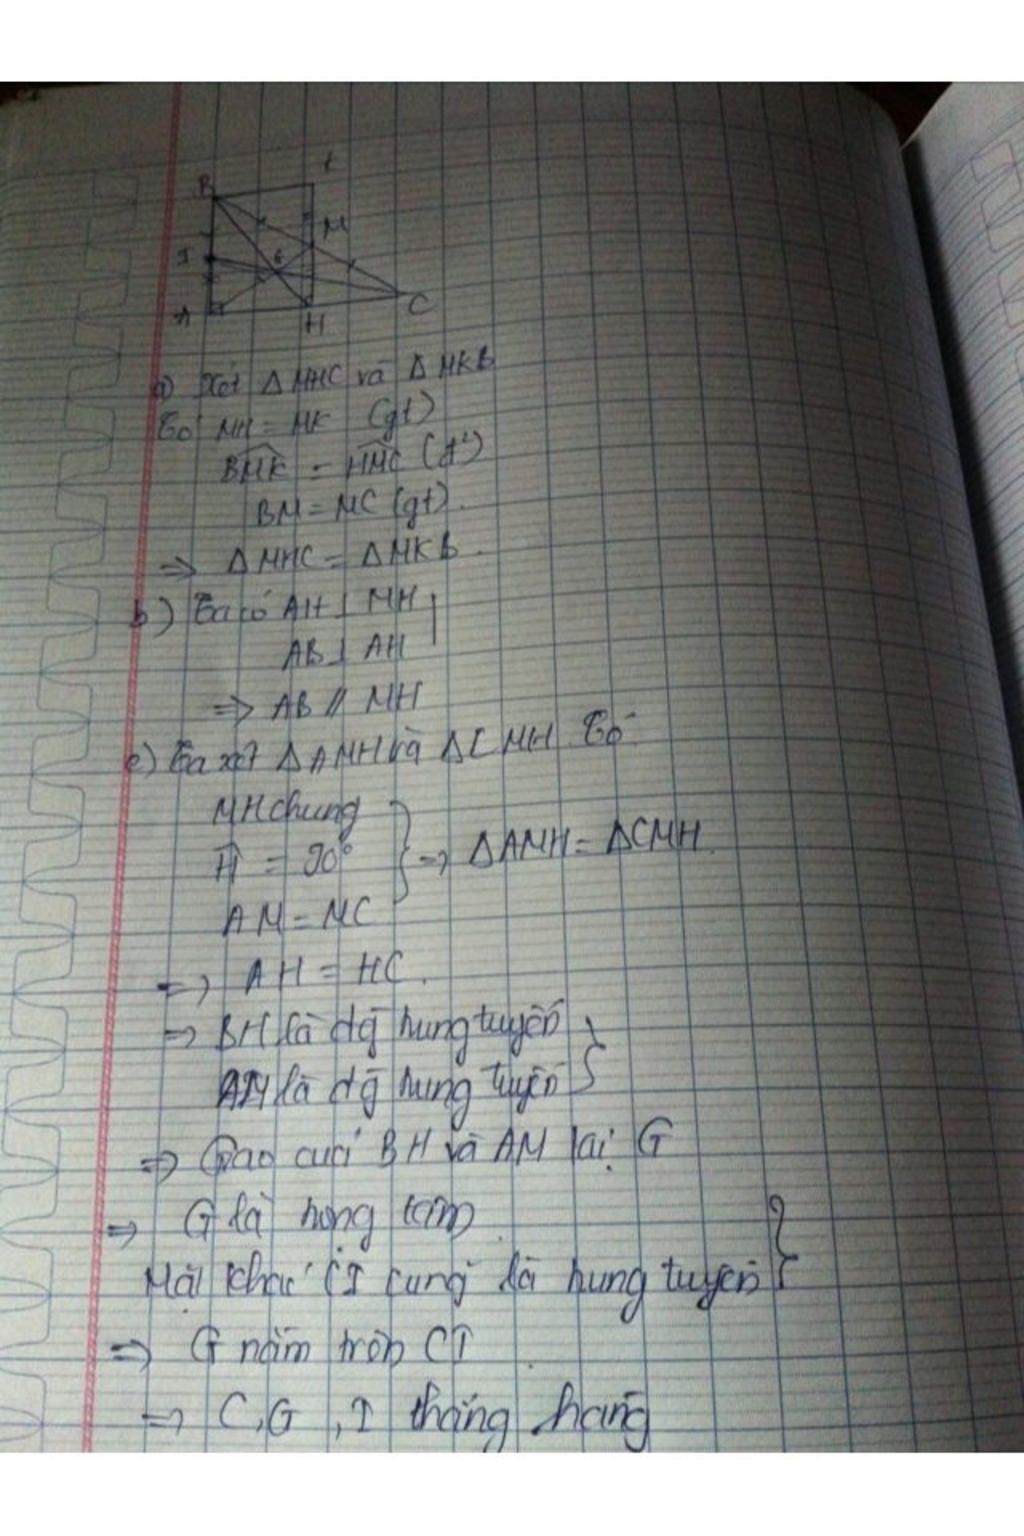 B
M
I
G
A
H
C
a) Xét Δ MHC và Δ MKB
Có MH = MK (gt)
BMK = HMC (đ²)
BM = MC (gt)
=> Δ MHC = Δ MKB.
b) Ta có AH ⊥ MH
AB ⊥ AH
=> AB // MH
c) Ta xét Δ AMH và Δ CMH Có
MH chung
H = 90°
AM = MC
=> Δ AMH = Δ CMH.
=> AH = HC.
=> BH là đg trung tuyến
AM là đg trung tuyến
=> Giao của BH và AM tại G
=> G là trọng tâm
Mặt khác CI cũng là trung tuyến
=> G nằm trên CI
=> C, G, I thẳng hàng